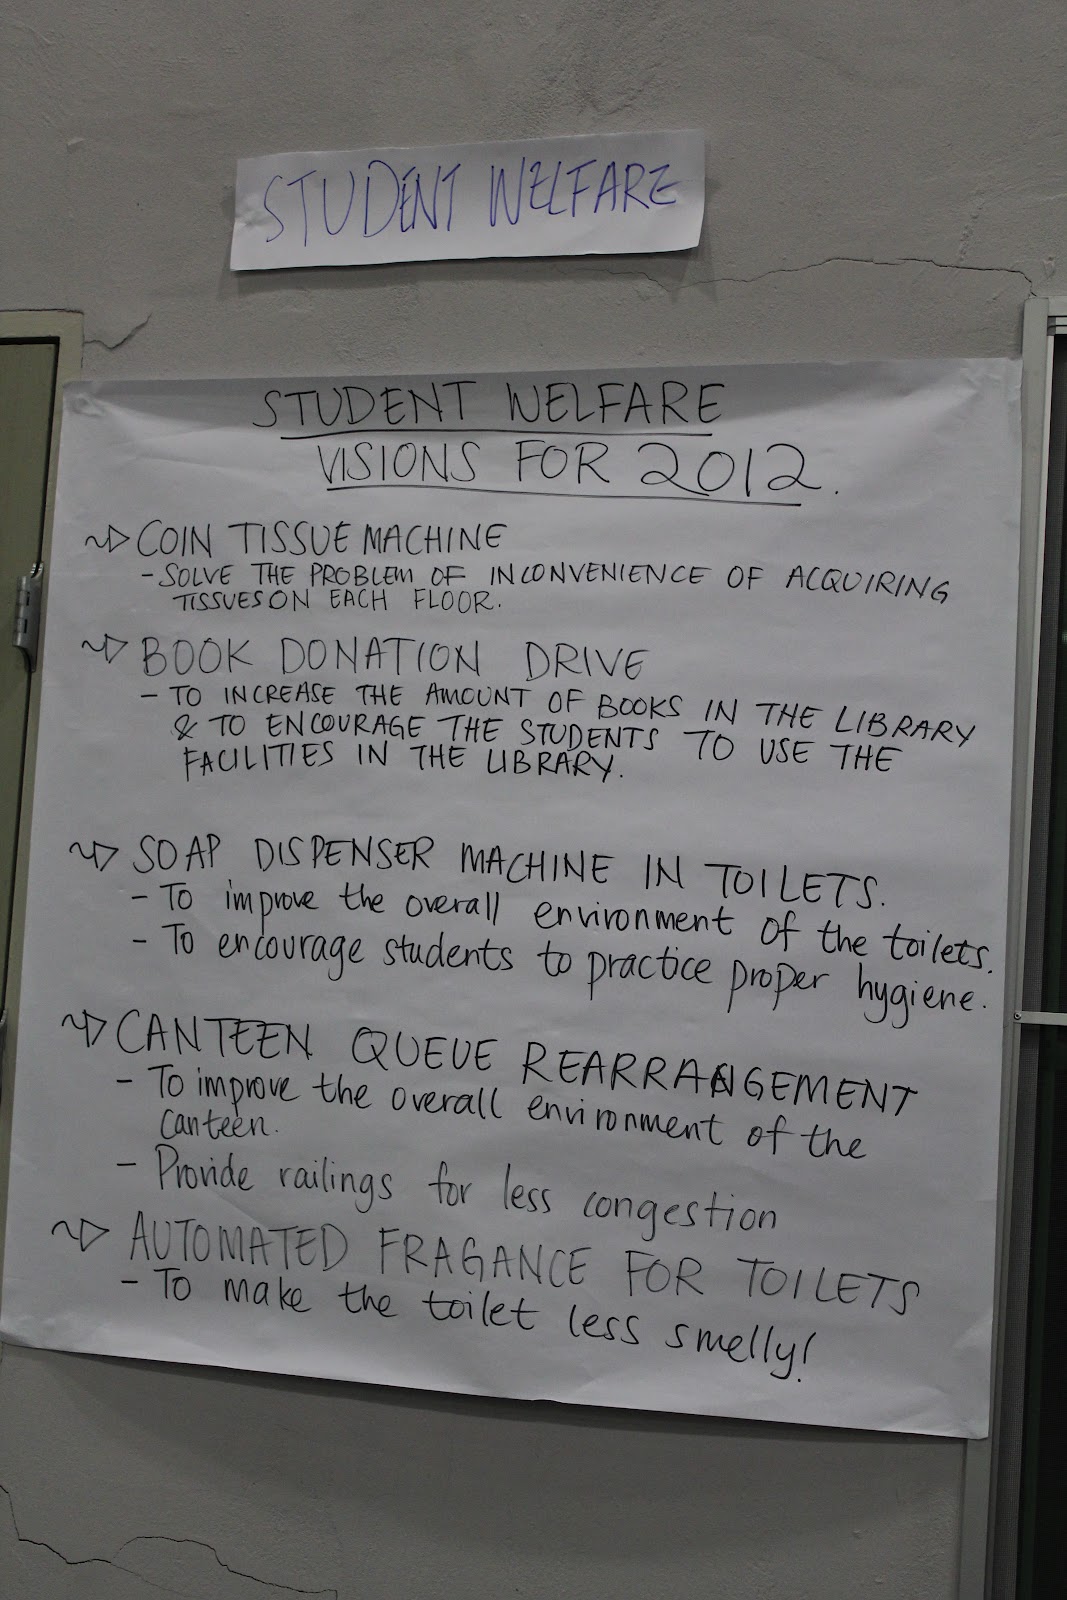 STUDENT WELFARE
STUDENT WELFARE
VISIONS FOR 2012.
COIN TISSUE MACHINE
- SOLVE THE PROBLEM OF INCONVENIENCE OF ACQUIRING
TISSUES ON EACH FLOOR.
BOOK DONATION DRIVE
- TO INCREASE THE AMOUNT OF BOOKS IN THE LIBRARY
& TO ENCOURAGE THE STUDENTS TO USE THE
FACILITIES IN THE LIBRARY.
SOAP DISPENSER MACHINE IN TOILETS.
- To improve the overall environment of the toilets.
- To encourage students to practice proper hygiene.
CANTEEN QUEUE REARRANGEMENT
- To improve the overall environment of the
canteen.
- Provide railings for less congestion
AUTOMATED FRAGANCE FOR TOILETS
- To make the toilet less smelly!